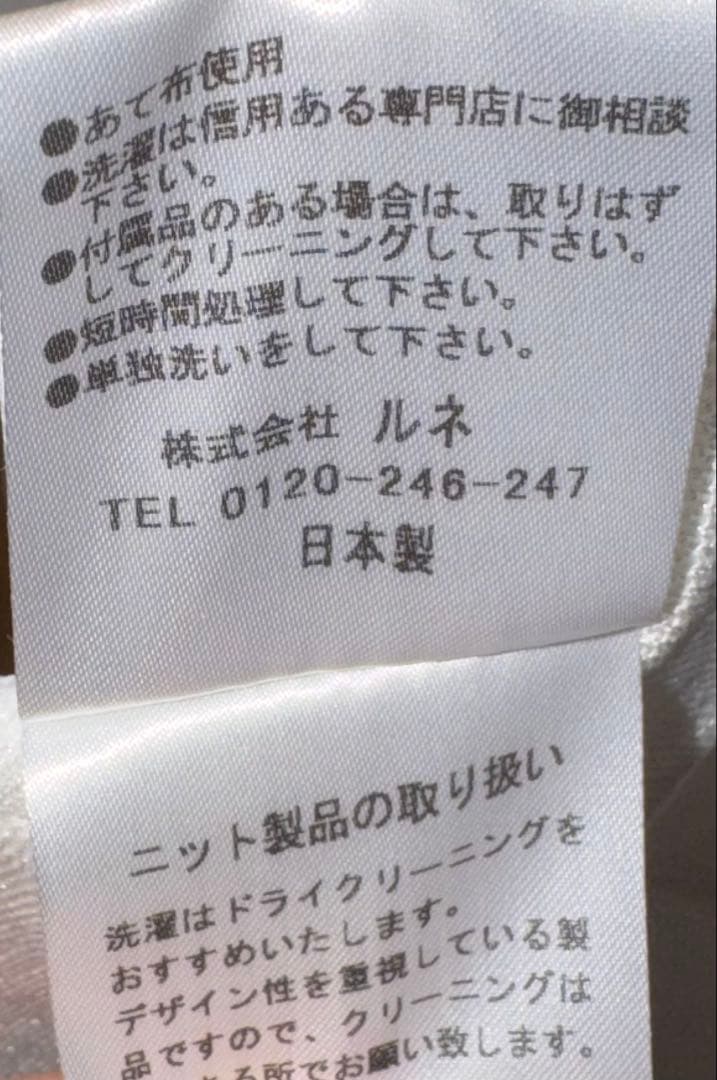 ●あて布使用
●洗濯は信用ある専門店に御相談
下さい。
●付属品のある場合は、取りはず
してクリーニングして下さい。
●短時間処理して下さい。
●単独洗いをして下さい。
株式会社 ルネ
TEL 0120-246-247
日本製
ニット製品の取り扱い
洗濯はドライクリーニングを
おすすめいたします。
デザイン性を重視している製
品ですので、クリーニングは
る所でお願い致します。